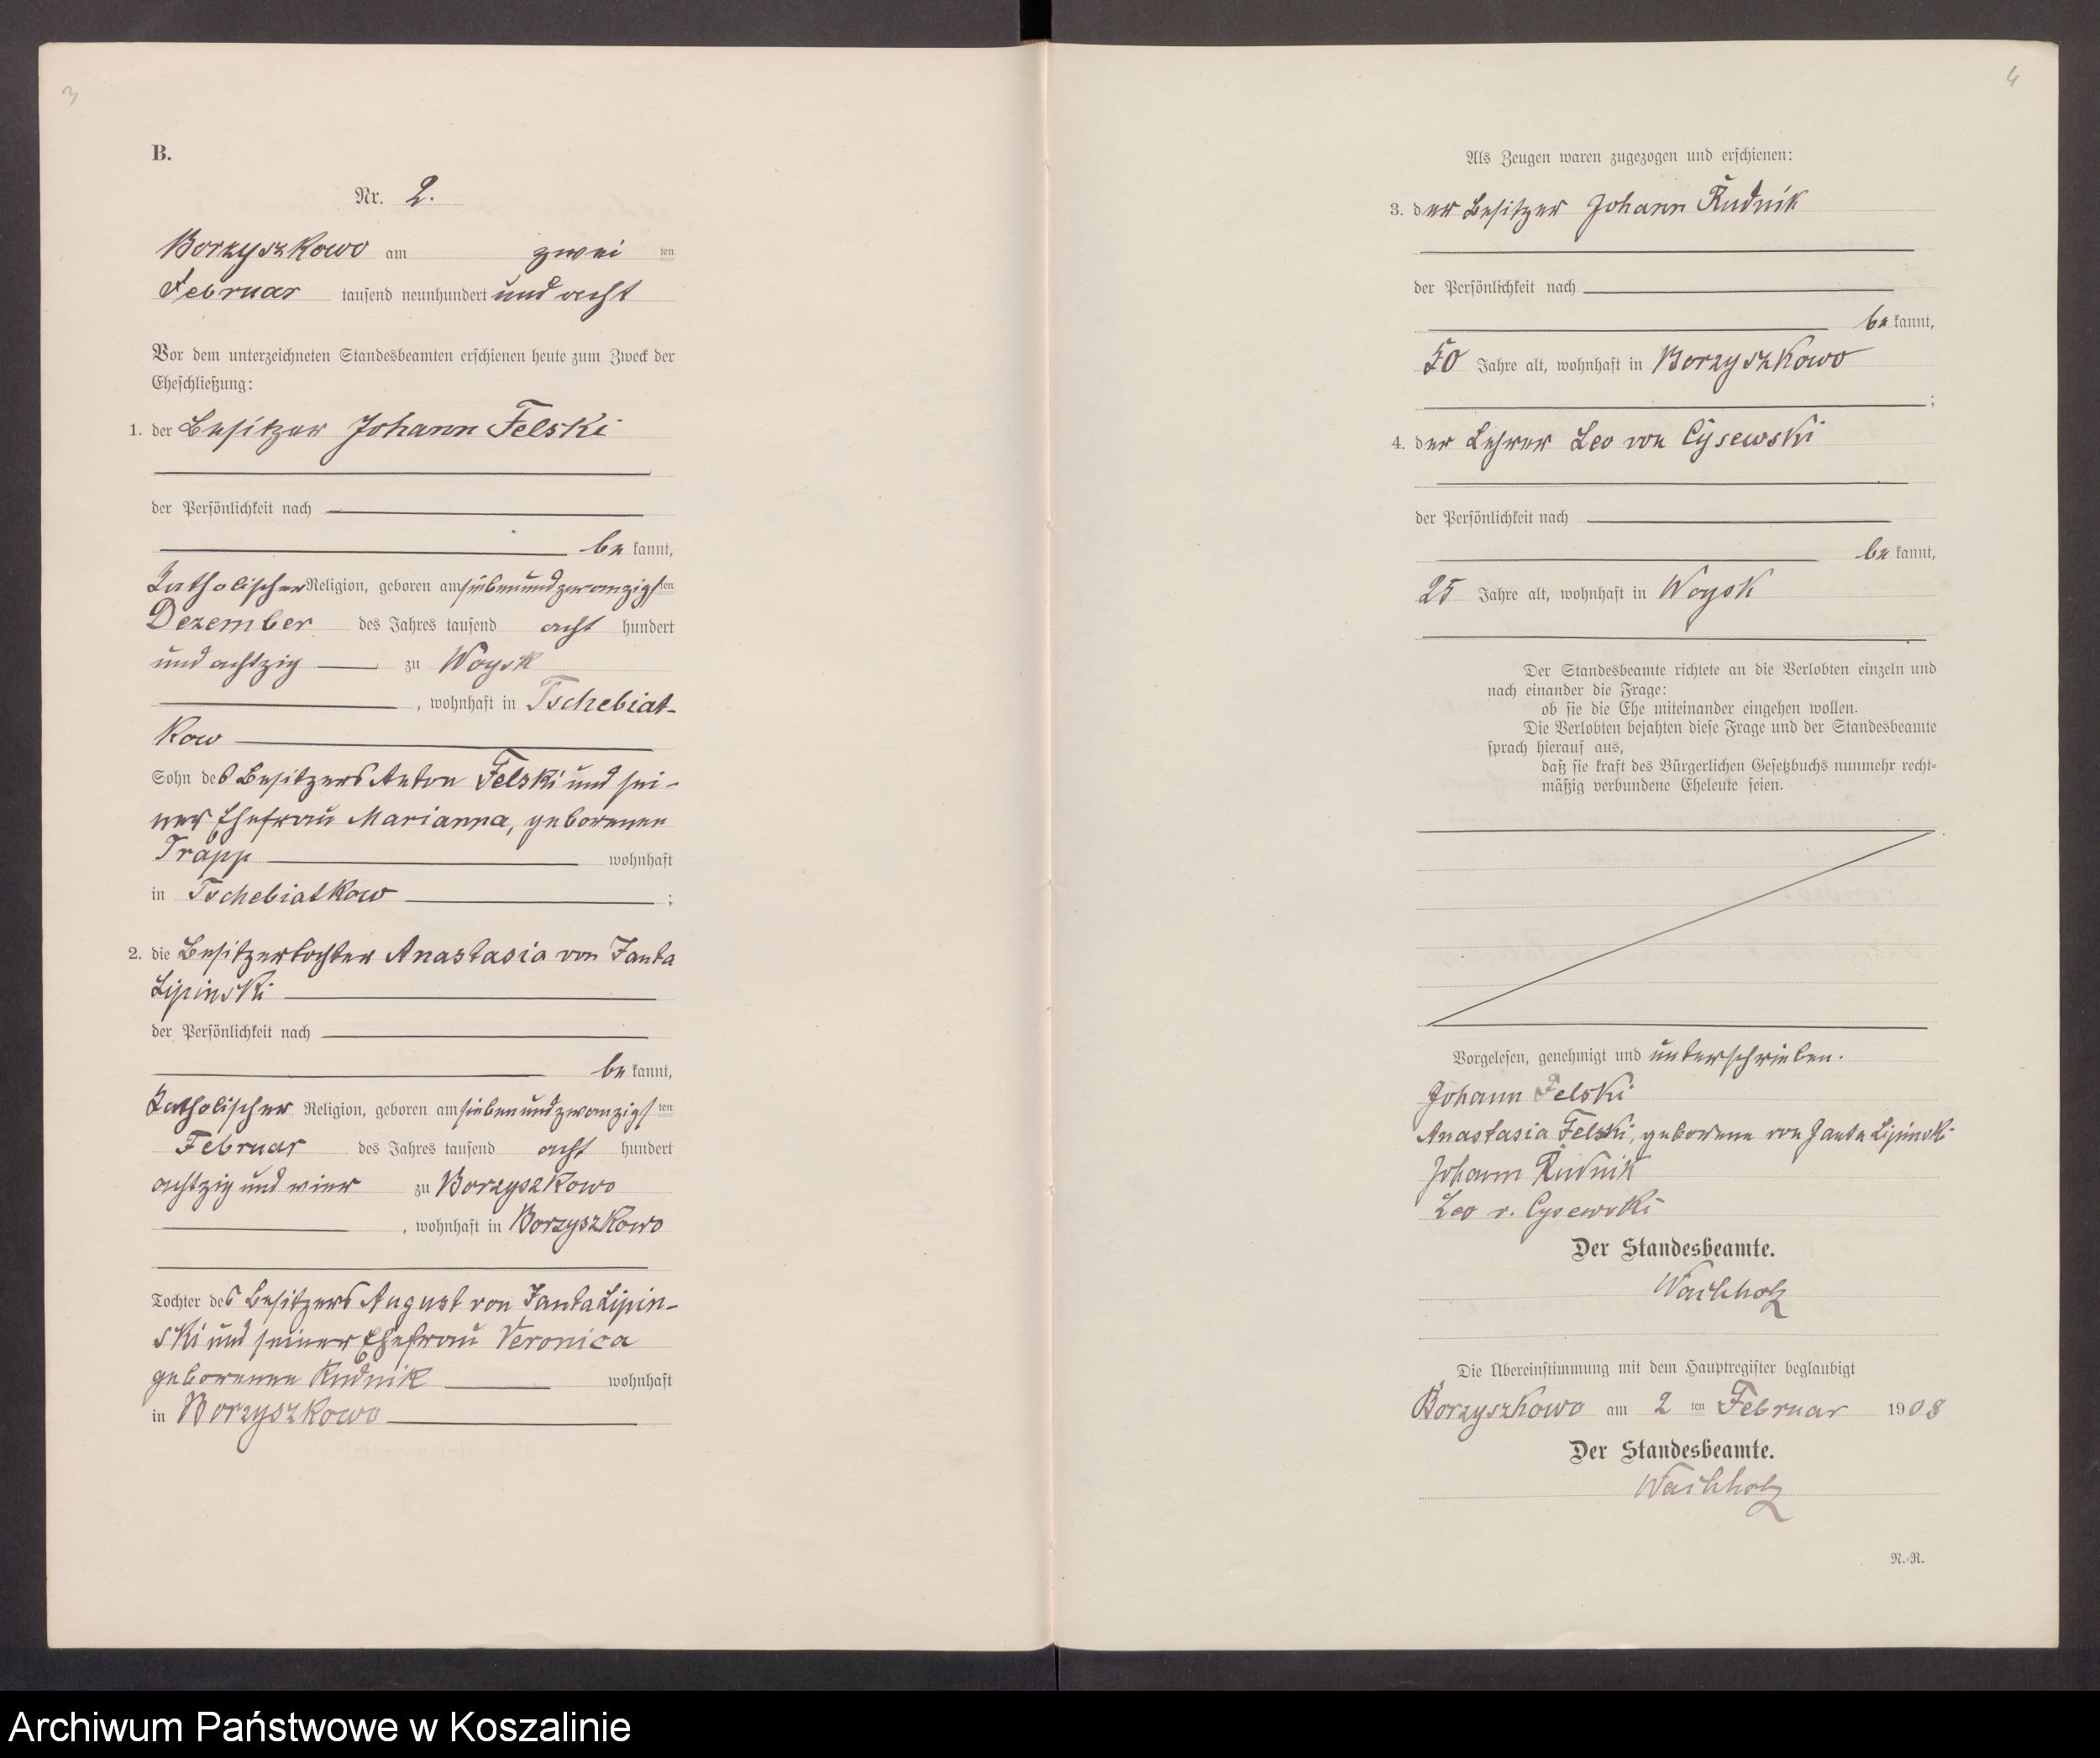 3
B.
Nr. 2.
Borzyszkowo am zwei ten
Februar tausend neunhundert und acht
Vor dem unterzeichneten Standesbeamten erschienen heute zum Zweck der
Eheschließung:
1. der Besitzer Johann Felski
der Persönlichkeit nach
be kannt,
katholischer Religion, geboren am siebenundzwanzigs ten
Dezember des Jahres tausend acht hundert
und achtzig zu Woysk
, wohnhaft in Tschebiat-
kow
Sohn des Besitzers Anton Felski und sei-
ner Ehefrau Marianna, geborenen
Trapp wohnhaft
in Tschebiatkow ;
2. die Besitzertochter Anastasia von Janta
Lipinski
der Persönlichkeit nach
be kannt,
katholischer Religion, geboren am siebenundzwanzigs ten
Februar des Jahres tausend acht hundert
achtzig und vier zu Borzyszkowo
, wohnhaft in Borzyszkowo
Tochter des Besitzers August von Janta Lipin-
ski und seiner Ehefrau Veronica
geborenen Rudnik wohnhaft
in Borzyszkowo
4
Als Zeugen waren zugezogen und erschienen:
3. der Besitzer Johann Rudnik
der Persönlichkeit nach
be kannt,
50 Jahre alt, wohnhaft in Borzyszkowo
;
4. der Lehrer Leo von Cysewski
der Persönlichkeit nach
be kannt,
25 Jahre alt, wohnhaft in Woysk
Der Standesbeamte richtete an die Verlobten einzeln und
nach einander die Frage:
ob sie die Ehe miteinander eingehen wollen.
Die Verlobten bejahten diese Frage und der Standesbeamte
sprach hierauf aus,
daß sie kraft des Bürgerlichen Gesetzbuchs nunmehr recht-
mäßig verbundene Eheleute seien.
Vorgelesen, genehmigt und unterschrieben.
Johann Felski
Anastasia Felski, geborene von Janta Lipinski
Johann Rudnik
Leo v. Cysewski
Der Standesbeamte.
Wachholz
Die Übereinstimmung mit dem Hauptregister beglaubigt
Borzyszkowo am 2 ten Februar 1908
Der Standesbeamte.
Wachholz
N.-R.
Archiwum Państwowe w Koszalinie